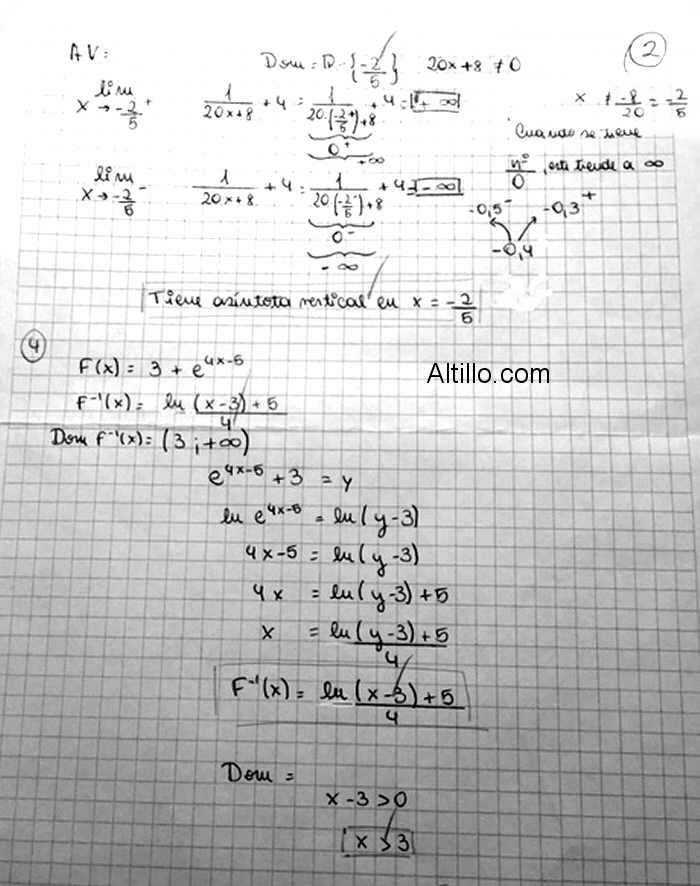 2
AV: Dom = R - {-2/5} 20x+8 ≠ 0
lim x → -2/5⁺ 1/(20x+8) + 4 = 1/(20·(-2/5⁺)+8) + 4 = + ∞ x ≠ -8/20 = -2/5
0⁺
+∞
Cuando se tiene
nº/0, este tiende a ∞
lim x → -2/5⁻ 1/(20x+8) + 4 = 1/(20(-2/5⁻)+8) + 4 = - ∞
0⁻
- ∞
-0,5⁻ -0,3⁺
-0,4
Tiene asíntota vertical en x = -2/5
4
F(x) = 3 + e^(4x-5)
Altillo.com
F⁻¹(x) = (ln (x-3) + 5)/4
Dom F⁻¹(x) = (3 ; +∞)
e^(4x-5) + 3 = y
ln e^(4x-5) = ln(y-3)
4x-5 = ln(y-3)
4x = ln(y-3) + 5
x = (ln(y-3) + 5)/4
F⁻¹(x) = (ln (x-3) + 5)/4
Dom =
x - 3 > 0
x > 3